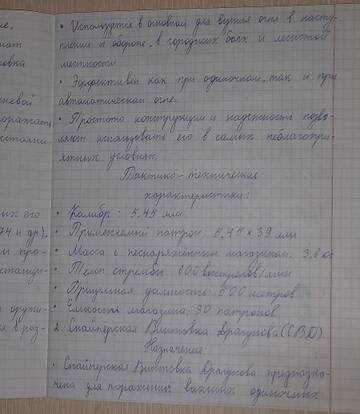 ие,
мат
овка
невой
оражать
стояни-
ых его
74 и др).
м про-
станци-
оружи-
в раз-
• Используется в основном для ведения огня в насту-
плении и обороне, в городских боях и лесистой
местности
• Эффективен как при одиночном, так и при
автоматическом огне.
• Простота конструкции и надежность позво-
ляют использовать его в самых неблагопри-
ятных условиях.
Тактико-технические
характеристики:
• Калибр: 5,45 мм
• Применяемый патрон: 5,45×39 мм
• Масса с неснаряженным магазином: 3,6 кг
• Темп стрельбы: 600 выстрелов/мин
• Прицельная дальность: 500 метров
• Ёмкость магазина: 30 патронов
2. Снайперская Винтовка Драгунова (СВД)
Назначение:
• Снайперская Винтовка Драгунова предназна-
чена для поражения важных одиночных